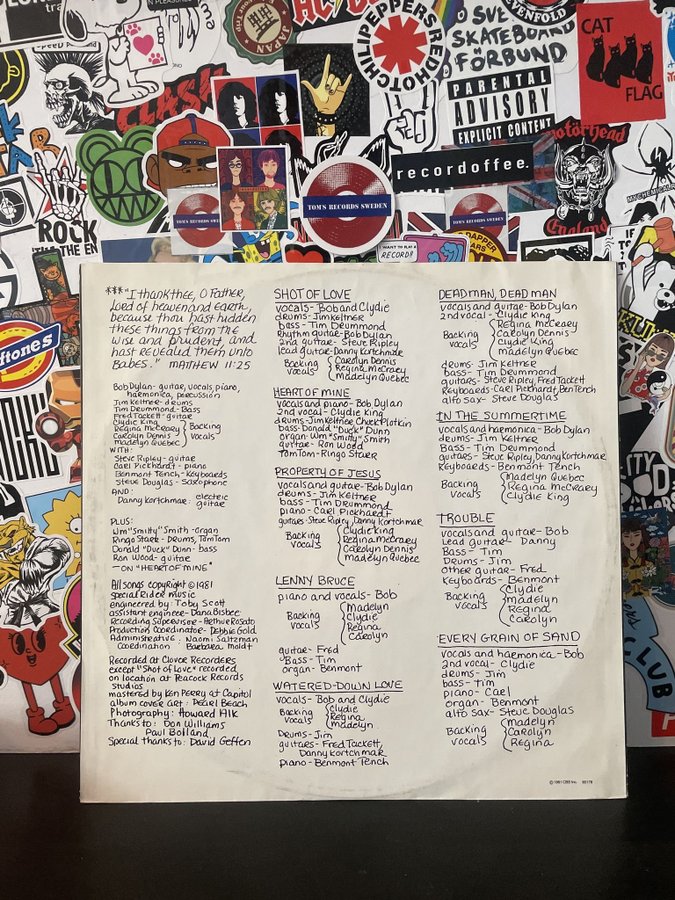 JAPAN
CLASH
REDHOTCHILIPEPPERS
SKATEBOARD
FÖRBUND
PARENTAL
ADVISORY
EXPLICIT CONTENT
CAT
FLAG
recordoffee.
motörhead
England
ROCK
TILL THE END
TOM'S RECORDS SWEDEN
TOM'S RECORDS SWEDEN
TOM'S RECORDS SWEDEN
I WANT TO PLAY A
RECORD!
deftones
CLUB
*** "I thank thee, O Father,
Lord of heaven and earth,
because thou hast hidden
these things from the
wise and prudent, and
hast revealed them unto
Babes." MATTHEW 11:25
Bob Dylan - guitar, vocals, piano
harmonica, percussion
Jim Keltner - drums
Tim Drummond - Bass
Fred Tackett - guitar
Clydie King
Regina McCrarey
Carolyn Dennis
madelyn Quebec
Backing
vocals
WITH:
Steve Ripley - guitar
Carl Pickhardt - piano
Benmont Tench - Keyboards
Steve Douglas - Saxophone
AND:
Danny Kortchmar: electric
guitar
PLUS:
Wm "Smitty" Smith - organ
Ringo Starr - Drums, TomTom
Donald "Duck" Dunn - bass
Ron Wood - guitar
— ON "HEART OF MINE"
All songs copyright © 1981
Special Rider music
engineered by: Toby Scott
assistant engineer - Dana Bisbee
Recording Supervisor - Arthur Rosato
Production Coordinator - Debbie Gold
Administrative . Naomi Saltzman
Coordination Barbara Moldt
Recorded at Clover Recorders
except "Shot of Love" recorded
on location at Peacock Records
Studios
mastered by Ken Perry at Capitol
album cover art: Pearl Beach
Photography: Howard Alk
Thanks to: Don Williams
Paul Bolland
Special thanks to: David Geffen
SHOT OF LOVE
vocals - Bob and Clydie
drums - Jim Keltner
bass - Tim Drummond
Rhythm guitar - Bob Dylan
2nd guitar - Steve Ripley
lead guitar - Danny Kortchmar
Backing
vocals
Carolyn Dennis
Regina McCraey
Madelyn Quebec
HEART OF MINE
vocals and piano - Bob Dylan
2nd vocal - Clydie King
drums - Jim Keltner, Chuck Plotkin
bass - Donald "Duck" Dunn
organ - Wm "Smitty" Smith
guitar - Ron Wood
TomTom - Ringo Starr
PROPERTY OF JESUS
vocals and guitar - Bob Dylan
drums - Jim Keltner
bass - Tim Drummond
piano - Carl Pickhardt
guitars - Steve Ripley, Danny Kortchmar
Backing
vocals
Clydie King
Regina McCraey
Carolyn Dennis
madelyn Quebec
LENNY BRUCE
piano and vocals - Bob
Backing
vocals
Madelyn
Clydie
Regina
Carolyn
guitar - Fred
Bass - Tim
organ - Benmont
WATERED-DOWN LOVE
vocals - Bob and Clydie
Backing
vocals
Clydie
Regina
madelyn
Drums - Jim
guitars - Fred Tackett,
Danny Kortchmar
piano - Benmont Tench
DEAD MAN, DEAD MAN
vocals and guitar - Bob Dylan
2nd vocal - Clydie King
Backing
vocals
Regina McCreary
Carolyn Dennis
Clydie King
madelyn Quebec
drums - Jim Keltner
bass - Tim Drummond
guitars - Steve Ripley, Fred Tackett
Keyboards - Carl Pickhardt, Ben Tench
alto sax - Steve Douglas
IN THE SUMMERTIME
vocals and harmonica - Bob Dylan
drums - Jim Keltner
bass - Tim Drummond
guitars - Steve Ripley, Danny Kortchmar
Keyboards - Benmont Tench
Backing
vocals
Madelyn Quebec
Regina McCrarey
Clydie King
TROUBLE
vocals and guitar - Bob
Lead guitar - Danny
Bass - Tim
Drums - Jim
other guitar - Fred
Keyboards - Benmont
Backing
vocals
Clydie
madelyn
Regina
Carolyn
EVERY GRAIN OF SAND
vocals and harmonica - Bob
2nd vocal - Clydie
drums - Jim
bass - tim
piano - Carl
organ - Benmont
alto sax - Steve Douglas
Backing
vocals
madelyn
Carolyn
Regina
© 1981 CBS Inc.